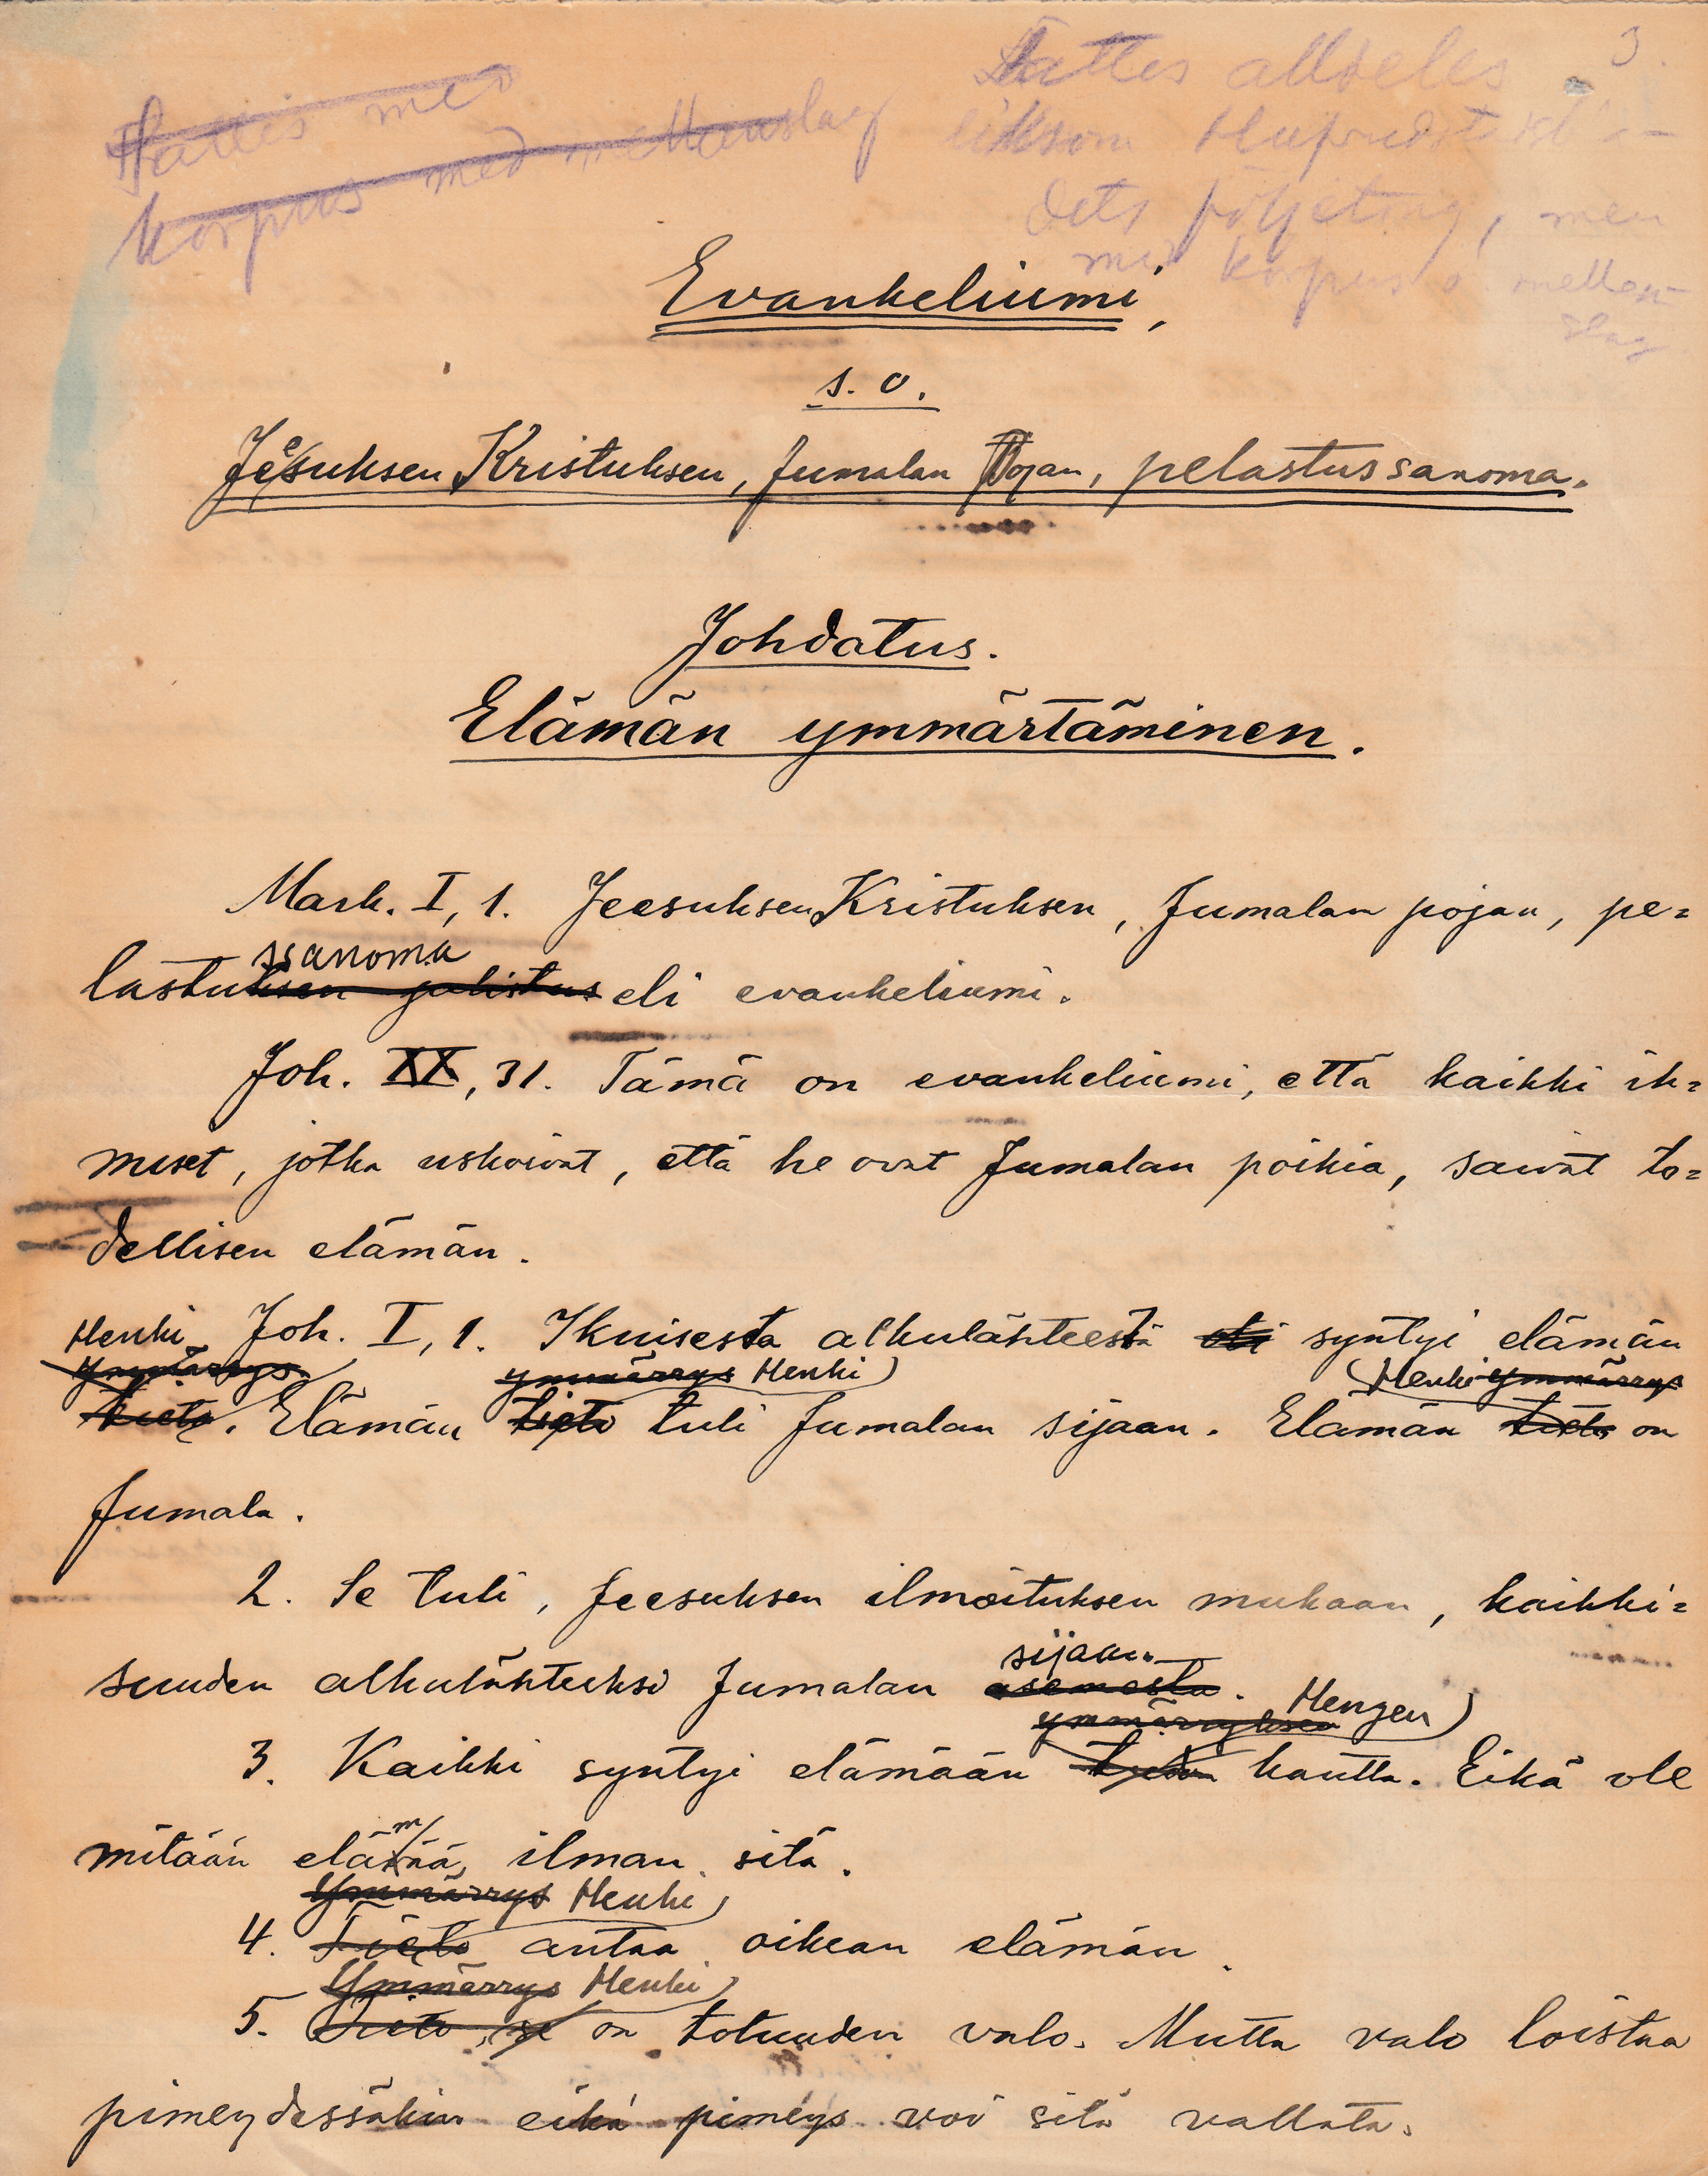 3.
Sättes alldeles
Sättes med
korpus med mellanslag
liksom Hufvudstadsbla-
dets följetång, men
med korpus o. mellan-
slag
Evankeliumi,
s. o.
Jeesuksen Kristuksen, Jumalan Pojan, pelastussanoma.
Johdatus.
Elämän ymmärtäminen.
Mark. I, 1. Jeesuksen Kristuksen, Jumalan pojan, pe=
ssanoma
lastuksen julistus eli evankeliumi.
Joh. XX, 31. Tämä on evankeliumi, että kaikki ih=
miset, jotka uskoivat, että he ovat Jumalan poikia, saivat to=
dellisen elämän.
Henki Joh. I, 1. Ikuisesta alkulähteestä eli syntyi elämän
ymmärrys ymmärrys Henki Henki ymmärrys
tieto. Elämän tieto tuli Jumalan sijaan. Elämän tieto on
Jumala.
2. Se tuli, Jeesuksen ilmoituksen mukaan, kaikki=
sijaan.
suuden alkulähteeksi Jumalan asemesta.
ymmärryksen Hengen
3. Kaikki syntyi elämään tiedon kautta. Eikä ole
m
mitään elämää, ilman sitä.
Ymmärrys Henki
4. Tieto antaa oikean elämän.
Ymmärrys Henki
5. Tieto, se on totuuden valo. Mutta valo loistaa
pimeydessäkin eikä pimeys voi sitä vallata.